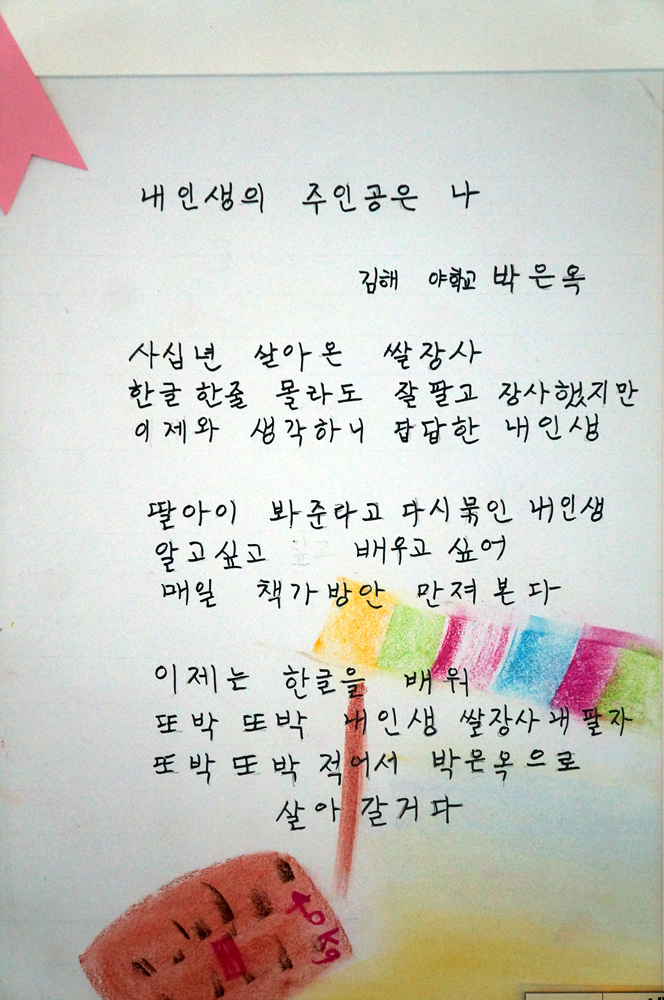 내인생의 주인공은 나
김해 야학교 박은옥
사십년 살아온 쌀장사
한글한줄 몰라도 잘팔고 장사했지만
이제와 생각하니 답답한 내인생
딸아이 봐준라고 다시묶인 내인생
알고싶고 배우고 싶어
매일 책가방안 만져본다
이제는 한글을 배워
또박 또박 내인생 쌀장사내팔자
또박또박 적어서 박은옥으로
살아갈거다
40kg